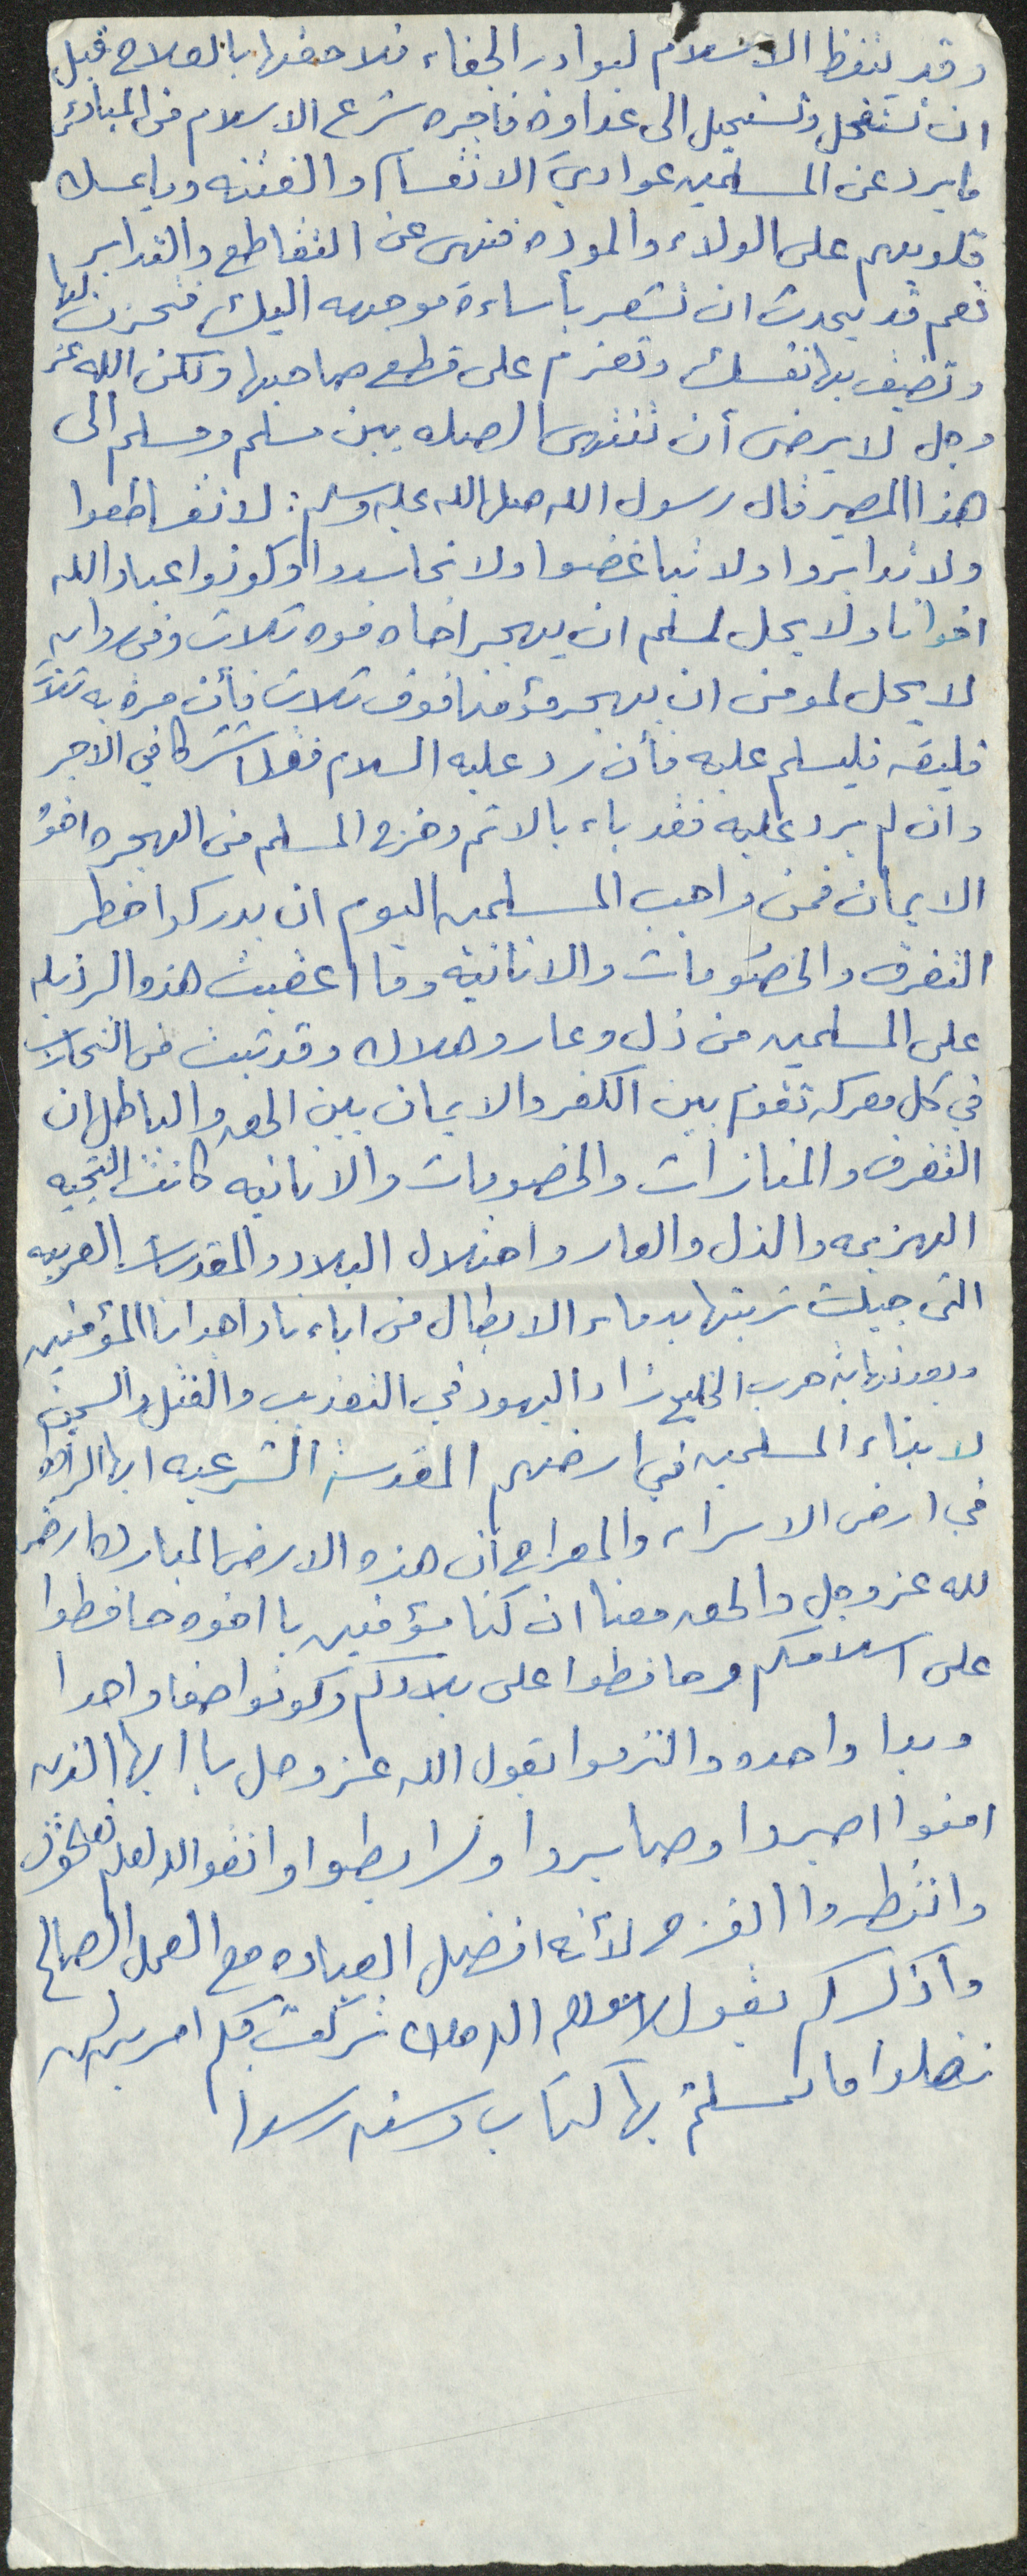 وقد يتيقظ الاسلام لبوادر الجفاء فلاحقها بالعلاج قبل
ان تستفحل وتستحيل الى عداوه فاجره شرع الاسلام من المبادئ
ما يرد عن المسلمين عوادي الانقسام والفتنه وما يمسك
قلوبهم على الولاء والموده فنهى عن التقاطع والتدابر
نعم قد يحدث ان تشعر بأساءة موجهه اليك فتحزن لها
وتضيق بها نفسك وتعزم على قطع صاحبها ولكن الله عز
وجل لا يرضى أن تنتهي الصله بين مسلم ومسلم الى
هذا المصير قال رسول الله صلى الله عليه وسلم: لا تقاطعوا
ولا تدابروا ولا تباغضوا ولا تحاسدوا وكونوا عباد الله
اخوانا ولا يحل لمسلم ان يهجر اخاه فوق ثلاث وفي روايه
لا يحل لمومن ان يهجر مؤمنا فوق ثلاث فأن مرت به ثلاث
فليلقه فليسلم عليه فأن رد عليه السلام فقد اشتركا في الاجر
وان لم يرد عليه فقد باء بالاثم وخرج المسلم من الهجره اخوة
الايمان فمن واجب المسلمين اليوم ان يدركوا خطر
التفرق والخصومات والانانية وما اعقبت هذه الرذيله
على المسلمين من ذل وعار وهلاك وقد ثبت من التجارب
في كل معركه تقوم بين الكفر والايمان بين الحق والباطل ان
التفرق والمنازات والخصومات والانانيه كانت النتجيه
الهزيمه والذل والعار واحتلال البلاد والمقدسات العربيه
التي جبلت تربتها بدماء الابطال من اباءنا واجدانا المؤمنين
وبعد نهاية حرب الخليج زاد اليهود في التعذيب والقتل والسجن
لابناء المسلمين في ارضهم المقدسة الشرعيه ايها الاخوه
في ارض الاسراء والمعراج أن هذه الارض المباركه ارض
لله عز وجل والحق معنا ان كنا مؤمنين يا اخوه حافظوا
على اسلامكم وحافظوا على بلادكم وكونوا صفا واحدا
ويدا واحده والتزموا بقول الله عز وجل يا ايها الذين
امنوا اصبروا وصابروا ورابطوا واتقوا الله لعلكم تفلحون
وانتظروا الفرج لأنه افضل العباده مع العمل الصالح
وأذكركم بقول الله تركت فيكم امرين لن
تضلوا ما تمسلتم بها كتاب وسنه رسوله